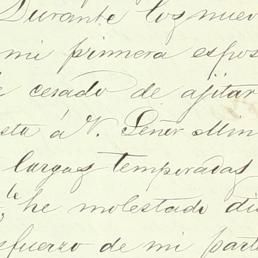 Durante los nuev
mi primera espos
cesado de ajitar
sta á V. Señor Min
largas temporadas
te he molestado di
sfuerzo de mi part